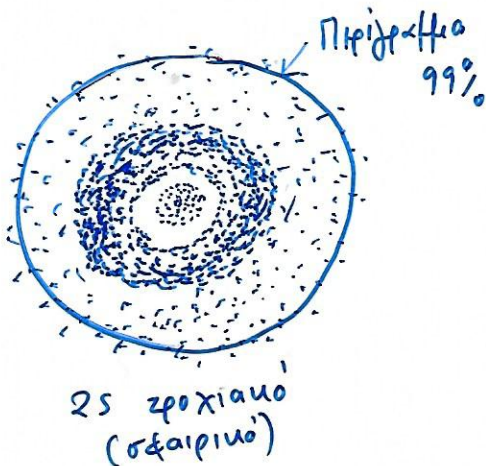 Περίγραμμα
99%
2s τροχιακό
(σφαιρικό)